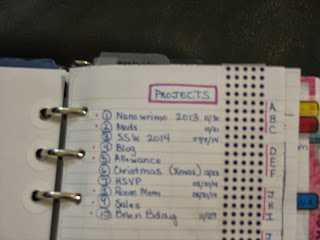 PROJECTS
1 Nanowrimo 2013 11/30
2 Meds
3 SSW 2014
4 Blog
5 Allowance
6 Christmas (Xmas) 12/25
7 HSVP
8 Room Mom
9 Sales
10 Brien Bday 11/29
A
B
C
D
E
F
J
H
I
J
3